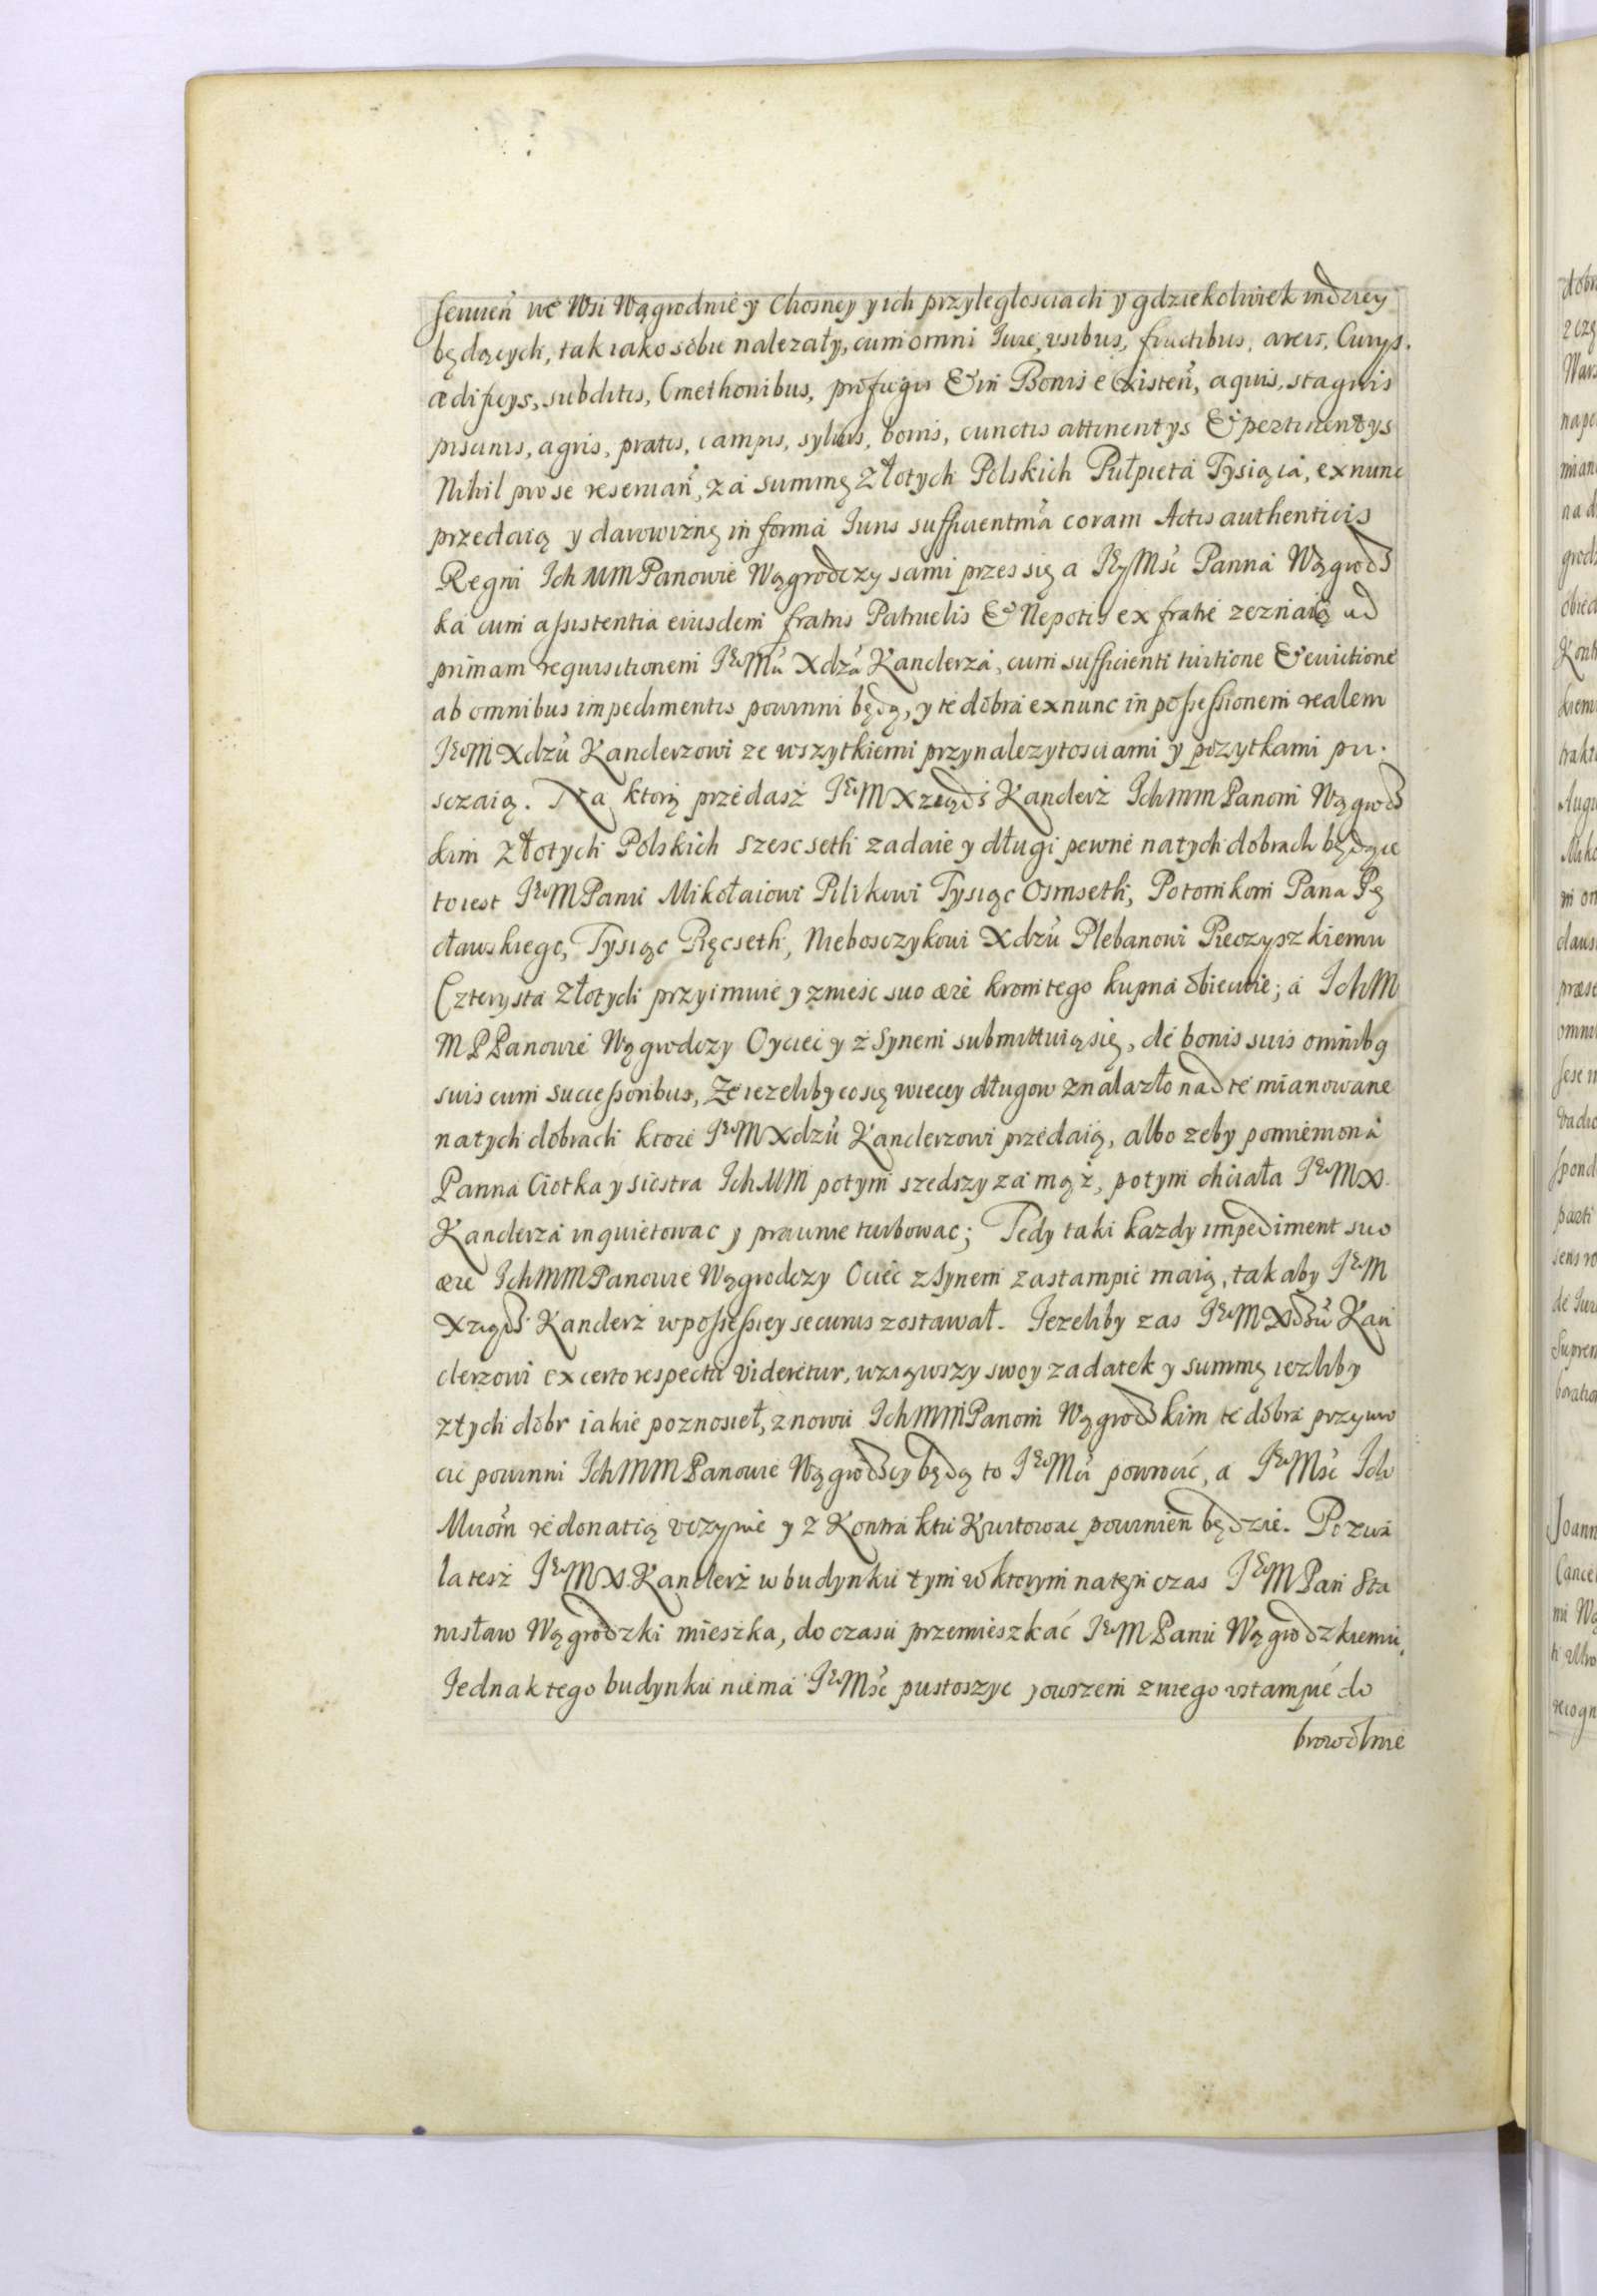 seruień we Wsi Wągrodnie y Chosney y ich przyległosciach y gdziekolwiek indziey
będących, tak iako sobie nalezały, cum omni Iure, vsibus, fructibus, areis, Curys.
ædificys, subditis, Cmethonibus, profugis & in Bonis existeñ, aquis, stagnis
piscinis, agris, pratis, campis, syluis, bonis, cunctis attinentys & pertinentys
Nihil pro se reseruañ, za summę Złotych Polskich Pułpięta Tysiąca, ex nunc
przedaią y darowiznę in forma Iuris sufficientmã coram Actis authenticis
Regni Ich MM Panowie Wągrodczy sami przes się a Iey Mść Panna Wągrods
ka cum assistentia eiusdem fratris Patruelis & Nepotis ex fratre zeznaią ad
primam requisitionem IEo Mći Xdza Kanclerza, cum sufficienti tuitione & euictione
ab omnibus impedimentis powinni będą, y te dobra ex nunc in possessionem realem
IEoM Xdzu Kanclerzowi ze wszytkiemi przynalezytosciami y pozytkami pu.
sczaią. Na ktorą przedasz IEoM Xziądz Kanclerz Ich MM Panom Wągrods
kim Złotych Polskich szescseth zadaie y długi pewne na tych dobrach będące
to iest IEoM Panu Mikołaiowi Pilikowi Tysiąc Osmseth, Potomkom Pana Pę
cławskiego, Tysiąc Pięcseth, Nieboszczykowi Xdzu Plebanowi Pieczyszkiemu
Czterysta Złotych przyimuie y znieść suo ære krom tego kupna obiecuie; a Ich M
M PPanowie Wągrodczy Oyciec y z Synem submittuią się, de bonis suis omnibg
suis cum successoribus, Ze iezeliby co się wiecey długow znalazło nad te mianowane
na tych dobrach ktore IEoM Xdzu Kanclerzowi przedaią, albo zeby pomieniona
Panna Ciotka y siostra Ich MM potym szedszy za mąż, potym chciała IEoM X.
Kanclerza inquietowac y prawnie turbowac; Tedy taki kazdy impediment suo
ære Ich MM Panowie Wągrodczy Ociec z synem zastampić maią, tak aby IEoM
Xziądz Kanclerz w possessiey securus zostawał. Iezeliby zas IEoM Xdzu Kan
clerzowi ex certo respectu videretur, wziąwszy swoy zadatek y summę iezliby
z tych dobr iakie poznosieł, znowu Ich MM Panom Wągrodskim te dobra przywro
cić powinni Ich MM Panowie Wągrodscy będą to IEoMći powrocić, a IEoMść Ich
Mciom redonatią vczynie y z Kontraktu Kwitowac powinien będzie. Pozwa
la tesz IEoM X. Kanclerz w budynku tym w ktorym na ten czas IEoM Pan Sta
nisław Wągrodzki mieszka, do czasu przemieszkać IEoM Panu Wągrodzkiemu,
Iednak tego budynku niema IEoMść pustoszyc y owszem z niego vstampić do
browolnie